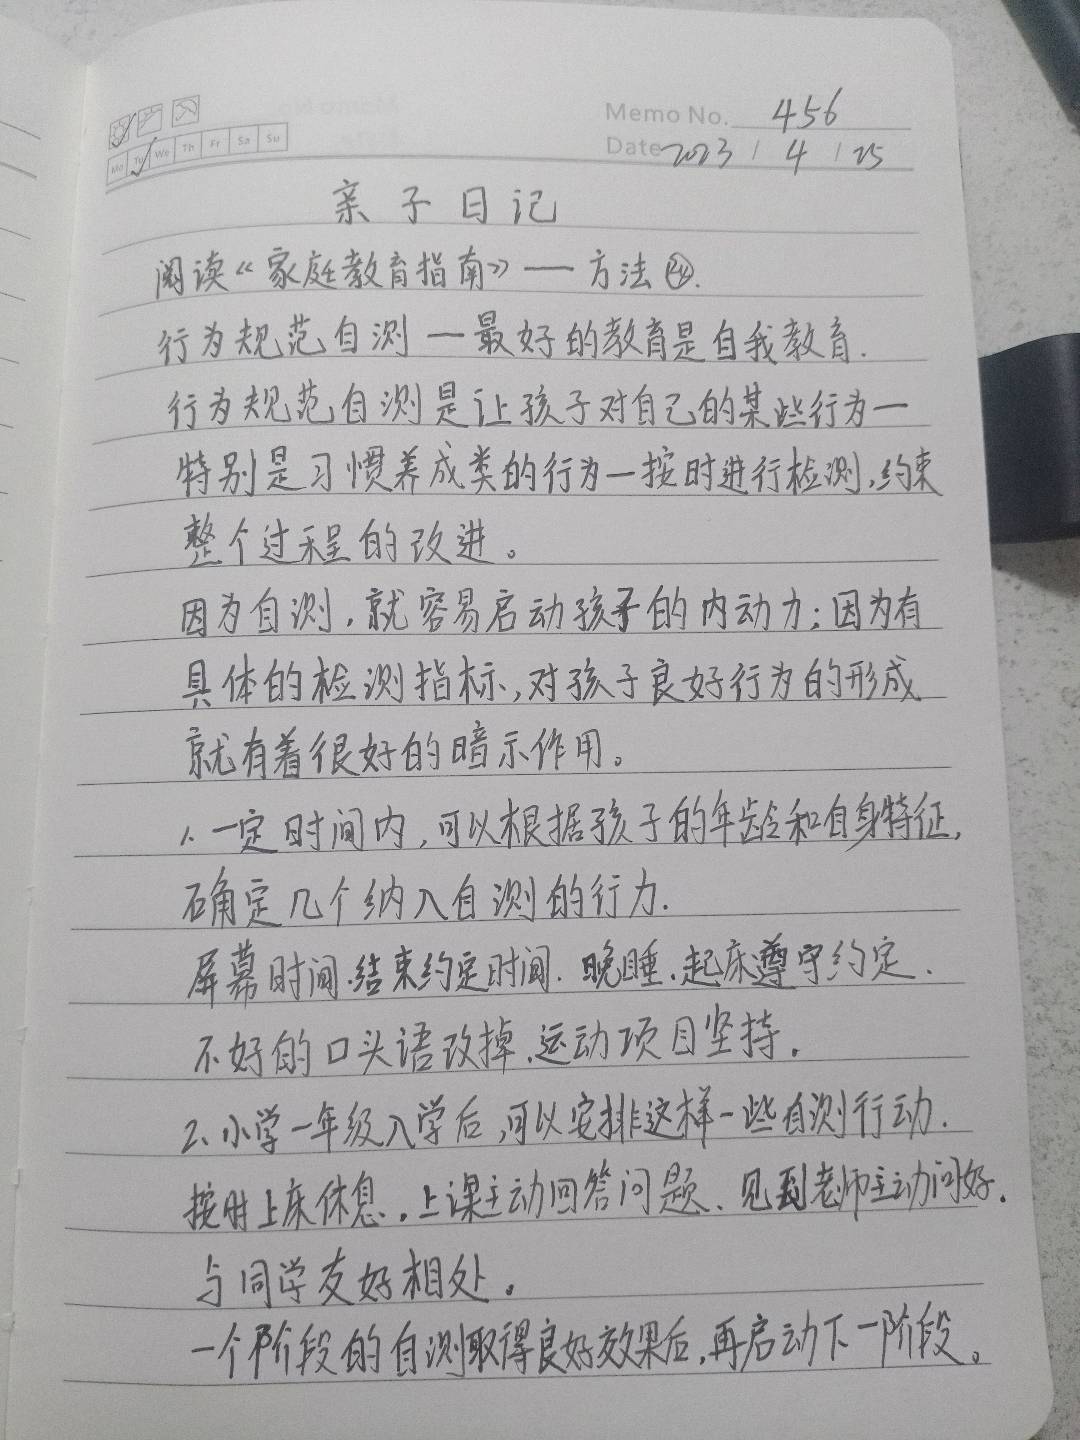 Memo No. 456
Mo Tu We Th Fr Sa Su
Date 2023 / 4 / 25
亲子日记
阅读《家庭教育指南》——方法㉔.
行为规范自测—最好的教育是自我教育.
行为规范自测是让孩子对自己的某些行为—
特别是习惯养成类的行为—按时进行检测,约束
整个过程的改进。
因为自测,就容易启动孩子的内动力;因为有
具体的检测指标,对孩子良好行为的形成
就有着很好的暗示作用。
1.一定时间内,可以根据孩子的年龄和自身特征,
确定几个纳入自测的行力.
屏幕时间.结束约定时间.晚睡.起床遵守约定.
不好的口头语改掉.运动项目坚持.
2.小学一年级入学后,可以安排这样一些自测行动.
按时上床休息.上课主动回答问题、见到老师主动问好.
与同学友好相处。
一个阶段的自测取得良好效果后,再启动下一阶段。